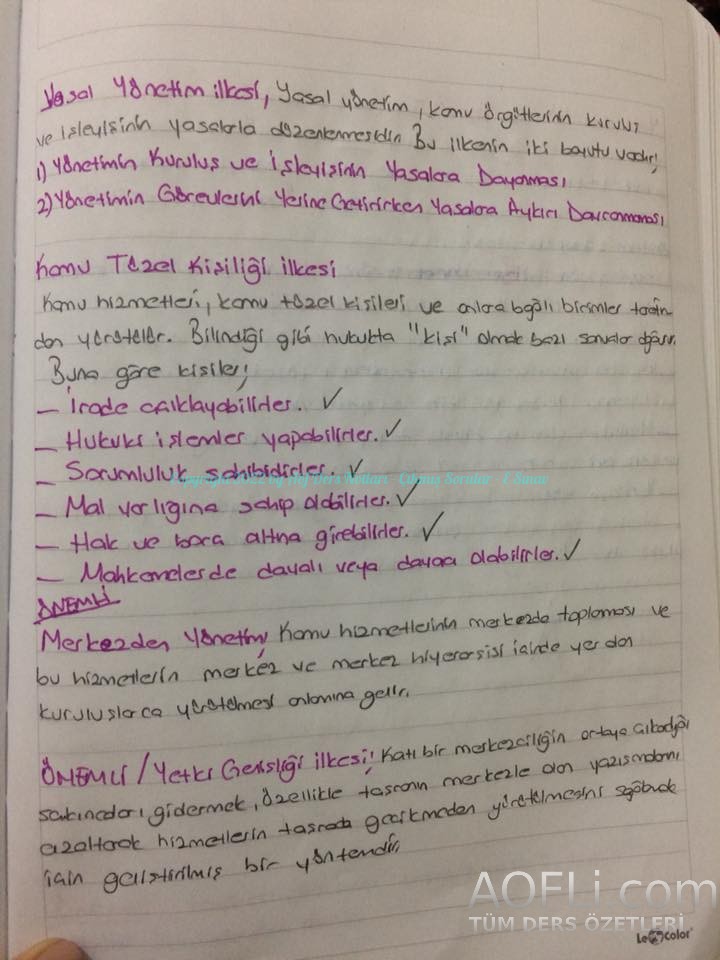 Yasal Yönetim ilkesi, Yasal yönetim, kamu örgütlerinin kuruluş
ve işleyişinin yasalarla düzenlenmesidir. Bu ilkenin iki boyutu vardır;
1) Yönetimin Kuruluş ve İşleyişinin Yasalara Dayanması
2) Yönetimin Görevlerini Yerine Getirirken Yasalara Aykırı Davranmaması
Kamu Tüzel Kişiliği İlkesi
Kamu hizmetleri, kamu tüzel kişileri ve onlara bağlı birimler tarafın-
dan yürütülür. Bilindiği gibi hukukta "kişi" olmak bazı sonuçlar doğurur.
Buna göre kişiler;
— İrade açıklayabilirler. ✓
— Hukuki işlemler yapabilirler. ✓
— Sorumluluk sahibidirler. ✓
— Mal varlığına sahip olabilirler. ✓
— Hak ve borç altına girebilirler. ✓
— Mahkemelerde davalı veya davacı olabilirler. ✓
ÖNEMLİ
Merkezden Yönetim; Kamu hizmetlerinin merkezde toplanması ve
bu hizmetlerin merkez ve merkez hiyerarşisi içinde yer alan
kuruluşlarca yürütülmesi anlamına gelir.
ÖNEMLİ / Yetki Genişliği ilkesi; Katı bir merkezciliğin ortaya çıkardığı
sakıncaları gidermek, özellikle taşranın merkezle olan yazışmalarını
azaltarak hizmetlerin taşrada gecikmeden yürütülmesini sağlamak
için geliştirilmiş bir yöntemdir.
AOFLi.com
TÜM DERS ÖZETLERİ
Le Color